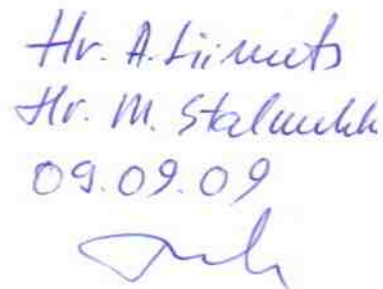 Hr. A. Liimets
Hr. M. Stalnuhh
09.09.09